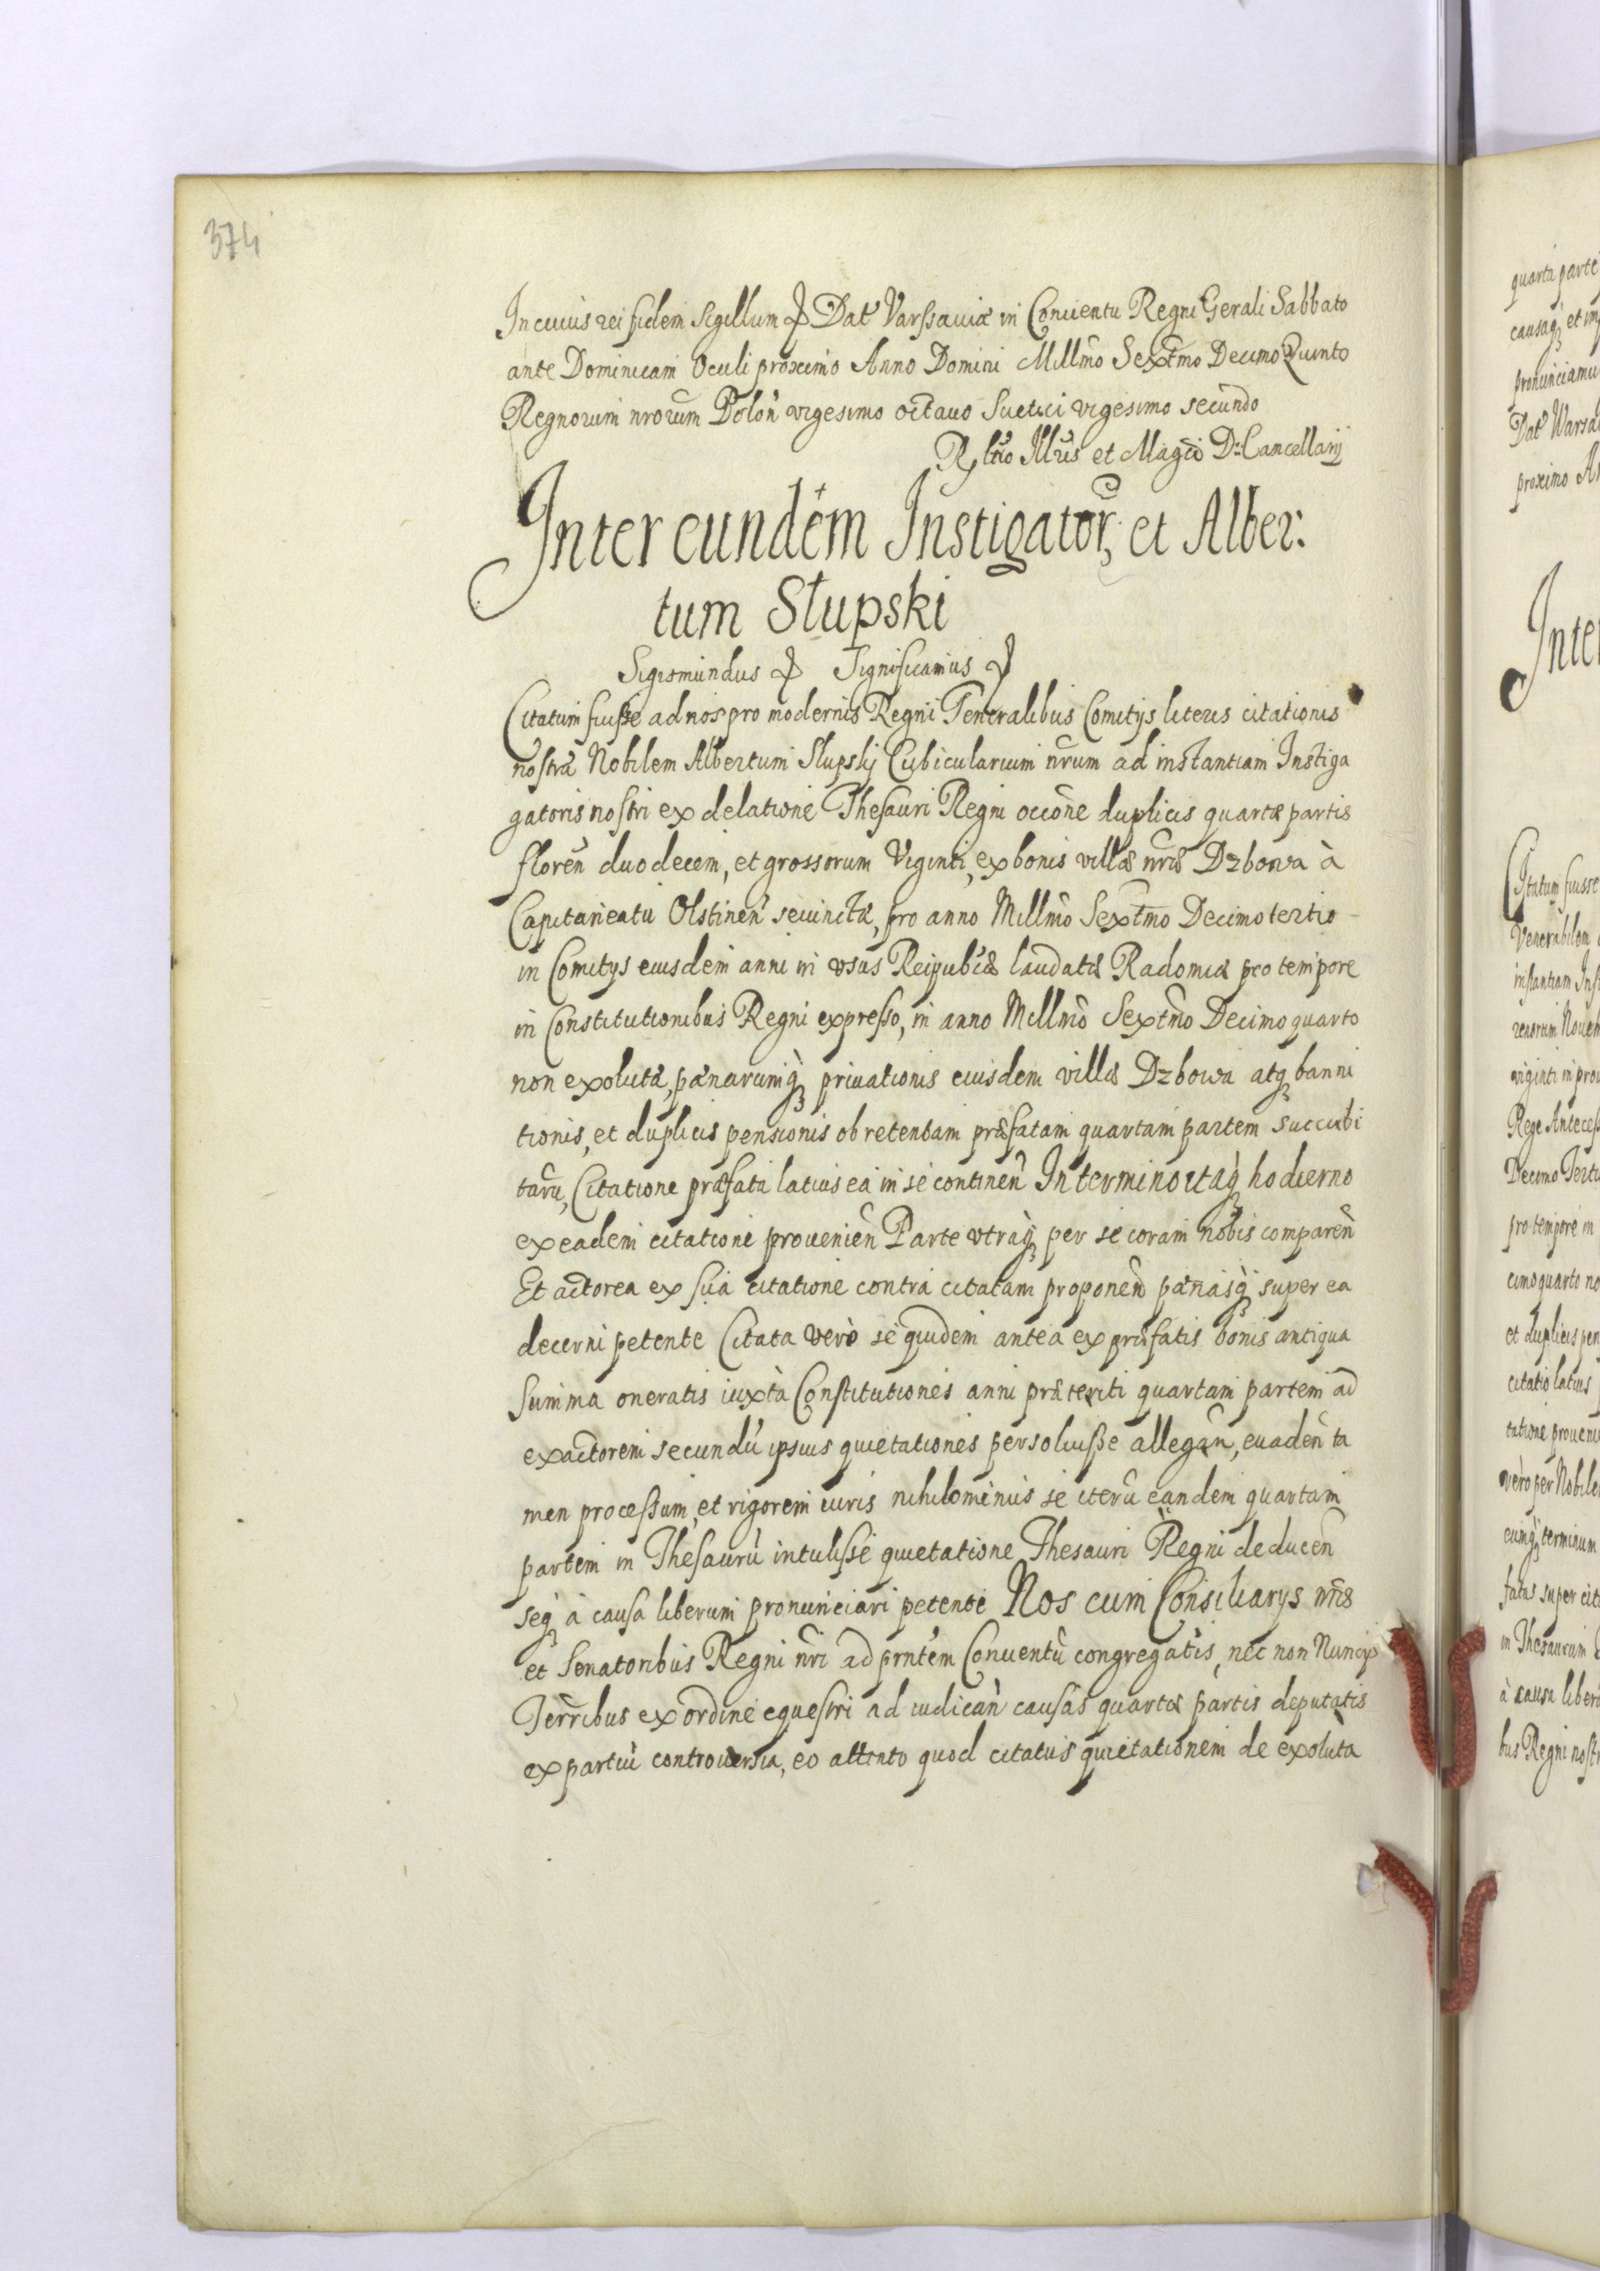 374
In cuius rei fidem Sigillum Dat Varssaviæ in Conuentu Regni Gerali Sabbato
ante Dominicam Oculi proximo Anno Domini Millmo Sextmo Decimo Quinto
Regnorum nrorum Polon vigesimo octauo Suetici vigesimo secundo
Rltio Illus et Magci D: Cancellarij
Inter eundem Instigator, et Alber:
tum Słupski
Sigismundus Significamus
Citatum fuisse ad nos pro modernis Regni Generalibus Comitys literis citationis
nostræ Nobilem Albertum Slupskj Cubicularium nrum ad instantiam Instiga
gatoris nostri ex delatione Thesauri Regni occone duplicis quartæ partis
floren duodecem, et grossorum Viginti, ex bonis villæ nræ Dzbowa à
Capitaneatu Olstinen seiunctæ, pro anno Millmo Sextmo Decimo tertio
in Comitys eiusdem anni in vsus Reipubcæ laudatæ Radomiæ pro tempore
in Constitutionibus Regni expresso, in anno Millmo Sextmo Decimo quarto
non exolutæ, pænarumq priuationis eiusdem villæ Dzbowa atq banni
tionis, et duplicis pensionis ob retentam præfatam quartam partem succubi
taru, Citatione præfata latius ea in se continen In termino itaq hodierno
ex eadem citatione prouenien Parte vtraq per se coram nobis comparen
Et actorea ex sua citatione contra citatam proponen pænasq super ea
decerni petente Citata verò se quidem antea ex præfatis bonis antiqua
summa oneratis iuxta Constitutiones anni præteriti quartam partem ad
exactorem secundu ipsius quietationes persoluisse allegan, euaden ta
men processum, et rigorem iuris nihilominus se iteru eandem quartam
partem in Thesauru intulisse quietatione Thesauri Regni deducen
seq à causa liberum pronunciari petente Nos cum Consiliarys nris
et Senatoribus Regni nri ad prntem Conuentu congregatis, nec non Nuncys
Terribus ex ordine equestri ad iudican causas quartæ partis deputatis
ex partiu controuersia, eo attento quod citatus quietationem de exoluta
quarta parte
causaq et im
pronunciamu
Dat Warsa
proximo An
Inter
Citatum fuisse
Venerabilem
instantiam Inst
viginti in prou
Rege Anteces
Decimo Terti
pro tempore in
cimo quarto no
et duplicis pen
citatio latius
tatione proueni
verò per Nobile
cumq terminum
fatas super cit
in Thesaurum
à causa liber
bus Regni nostr